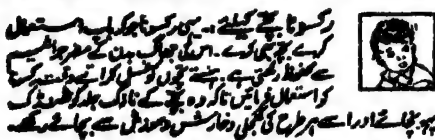 رکسونا بچے کیلئے ... سی رکسونا جو کہ آپ استعمال
کرے بچے بھی کرے۔ اس کی جھاگ بدن کے مضر جراثیم
سے محفوظ رکھتی ہے۔ بچوں کو غسل کراتے وقت رکسونا
کو استعمال فرمائیں تاکہ وہ بچے کے نازک جلد کو ٹھنڈک
پہونچائے اور اسے ہر طرح کی کھجلی و خارش و سے بچائے رکھے۔